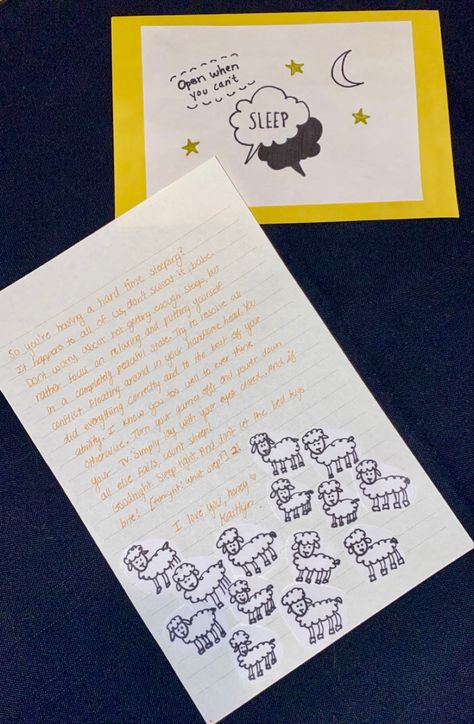 Open when
you can't
SLEEP
So you're having a hard time sleeping?
It happens to all of us, don't sweat it, babe.
Don't worry about not getting enough sleep, but
rather focus on relaxing and putting yourself
in a completely peaceful state. Try to resolve all
conflict floating around in your handsome head. You
did everything correctly and to the best of your
ability. I know you too well to ever think
otherwise. Turn your game off and power down
your TV. Simply lay with your eyes closed. And if
all else fails, count sheep!
Goodnight. Sleep tight. And don't let the bed bugs
bite!
I love you, honey
Kaitlyn